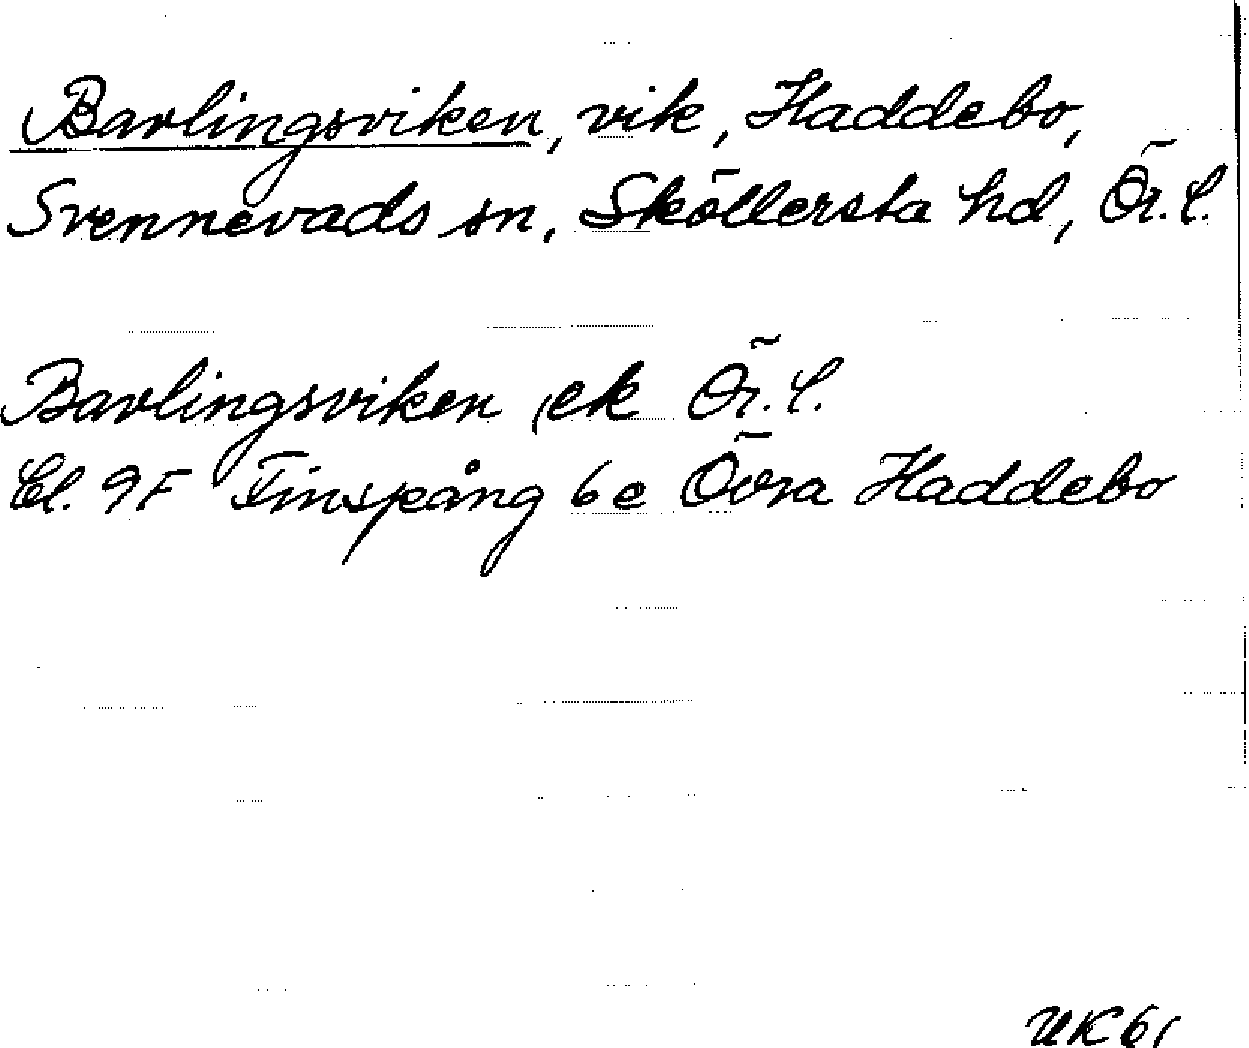 Bavlingsviken, vik, Haddebo,
Svennevads sn, Sköllersta hd, Ör. l.
Bavlingsviken ek Ör. l.
bl. 9F Finspång 6e Övra Haddebo
UK61